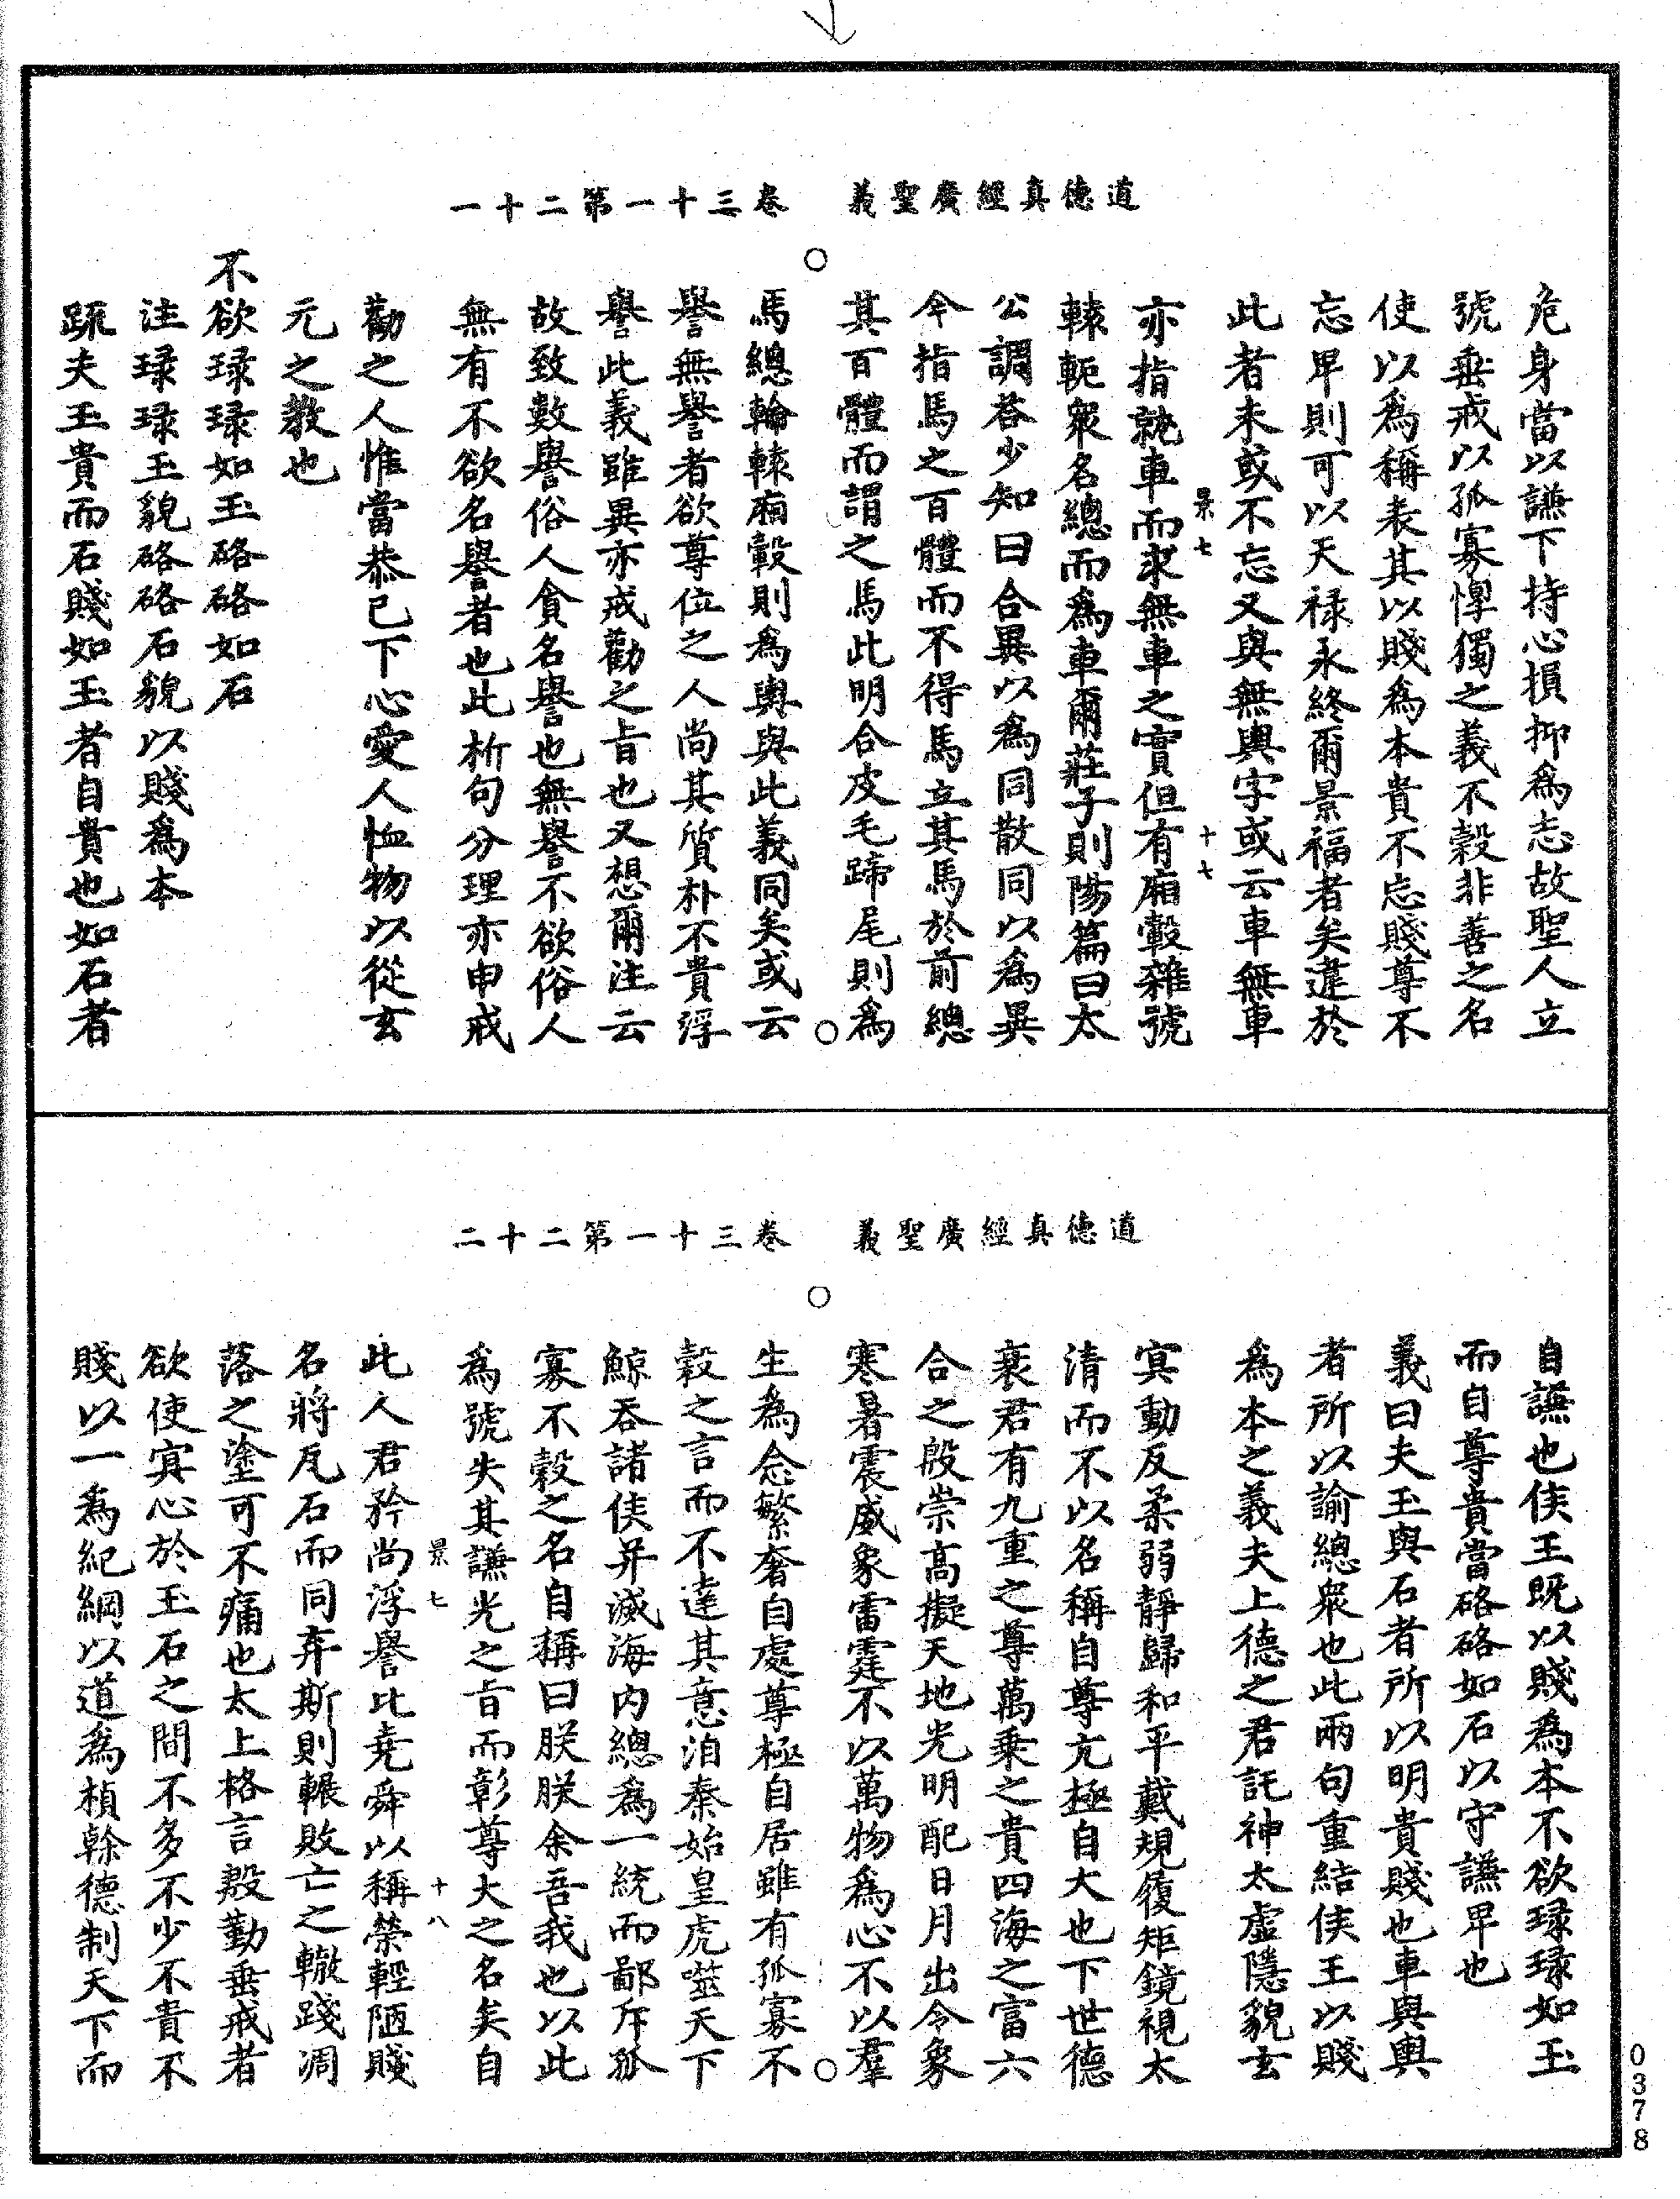 道德真經廣聖義　卷三十一第二十一
危身當以謙下持心損抑爲志故聖人立
號垂戒以孤寡惸獨之義不穀非善之名
使以爲稱表其以賤爲本貴不忘賤尊不
忘卑則可以天祿永終爾景福者矣違於
此者未或不忘又與無輿字或云車無車
亦指就車而求無車之實但有廂轂雜號
轅軛衆名總而爲車爾莊子則陽篇曰太
公調荅少知曰合異以爲同散同以爲異
今指馬之百體而不得馬立其馬於前總
其百體而謂之馬此明合皮毛蹄尾則爲
馬總輪轅廂轂則爲輿與此義同矣或云
譽無譽者欲尊位之人尚其質朴不貴浮
譽此義雖異亦戒勸之旨也又想爾注云
故致數譽俗人貪名譽也無譽不欲俗人
無有不欲名譽者也此析句分理亦申戒
勸之人惟當恭已下心愛人恤物以從玄
元之教也
不欲琭琭如玉硌硌如石
注琭琭玉貌硌硌石貌以賤爲本
疏夫玉貴而石賤如玉者自貴也如石者
景七　十七
道德真經廣聖義　卷三十一第二十二
自謙也侯王既以賤爲本不欲琭琭如玉
而自尊貴當硌硌如石以守謙卑也
義曰夫玉與石者所以明貴賤也車與輿
者所以諭總衆也此兩句重結侯王以賤
爲本之義夫上德之君託神太虛隱貌玄
寞動反柔弱靜歸和平戴規履矩鏡視太
清而不以名稱自尊亢極自大也下世德
衰君有九重之尊萬乘之貴四海之富六
合之殷崇高擬天地光明配日月出令象
寒暑震威象雷霆不以萬物爲心不以羣
生爲念繁奢自處尊極自居雖有孤寡不
穀之言而不達其意洎秦始皇虎噬天下
鯨吞諸侯并滅海內總爲一統而鄙斥孤
寡不穀之名自稱曰朕朕余吾我也以此
爲號失其謙光之旨而彰尊大之名矣自
此人君矜尚浮譽比堯舜以稱榮輕陋賤
名將瓦石而同弃斯則輾敗亡之轍踐凋
落之塗可不痛也太上格言殷勤垂戒者
欲使寞心於玉石之間不多不少不貴不
賤以一爲紀綱以道爲楨榦德制天下而
景七　十八
0378